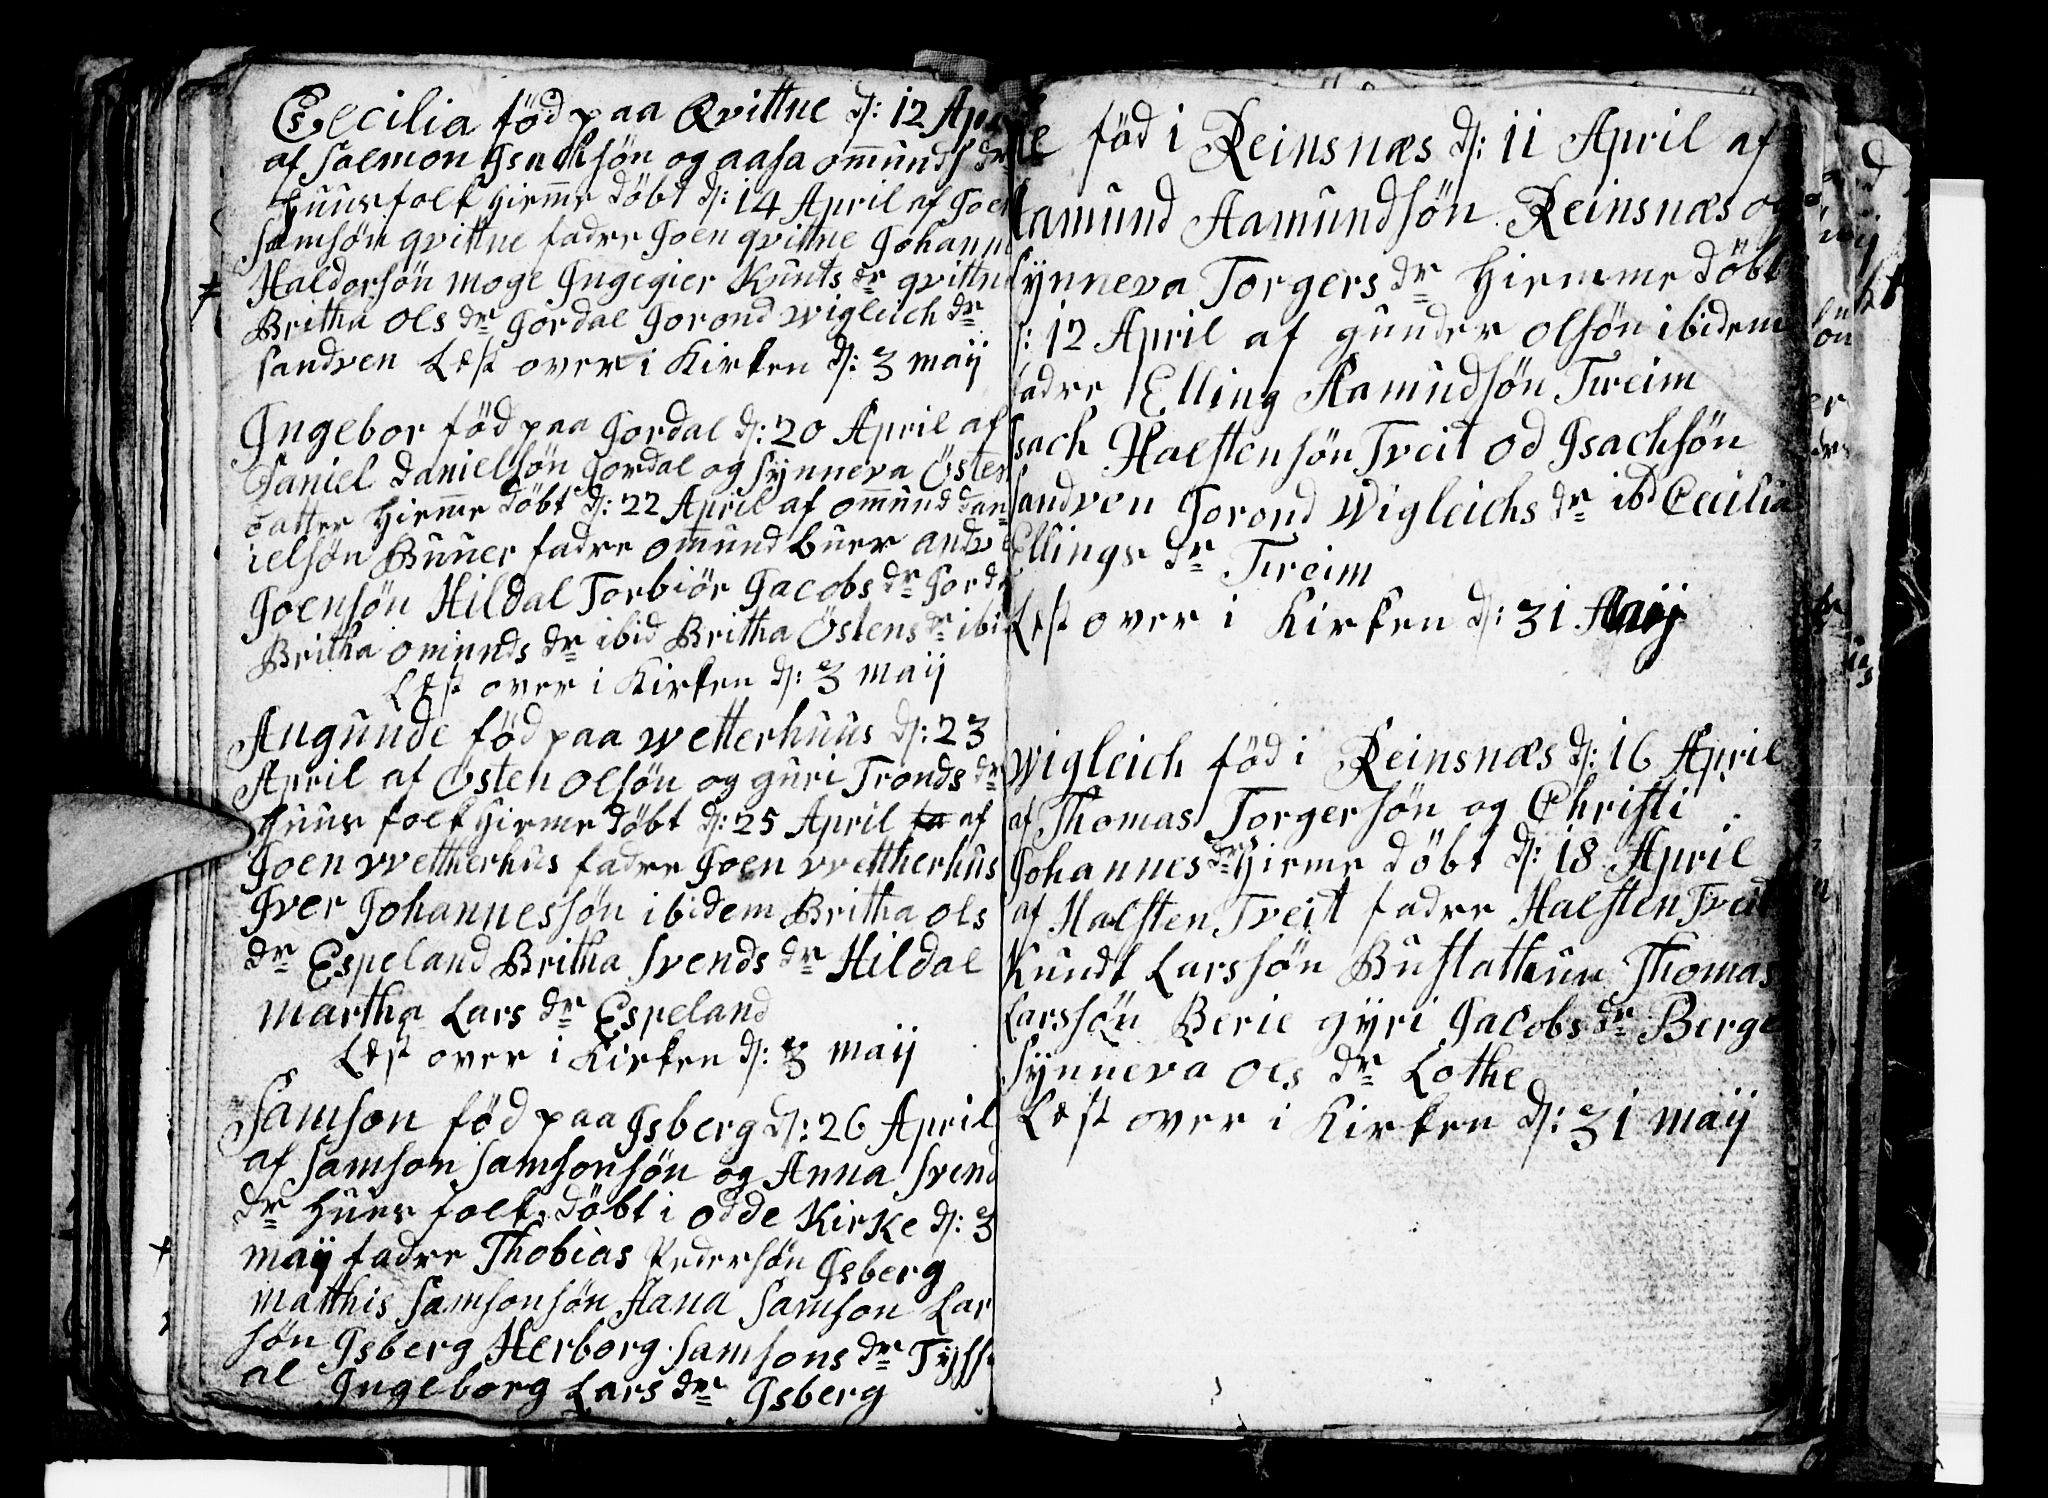 Cecilia föd paa Qvittne d: 12 Apr
af Salmon Isachsön og aasa omunds dr
huusfolk hiemme döbt d: 14 April af Joen
Samsön qvittne fadre Joen qvittne Johann
Haldorsön moge Ingegier Knuts dr qvittne
Britha Ols dr Jordal Jorond wigleich dr
Sandven Læst over i Kirken d: 3 maij
Ingebor föd paa Jordal d: 20 April af
Daniel Danielsön Jordal og Synneva Östen
datter hiemme döbt d: 22 April af omund Dan=
ielsön Buuer fadre omund buer andve
Joensön Hildal Torbiör Jacobs dr Jorda
Britha omunds dr ibid Britha Östens dr ibid
Læst over i Kirken d: 3 maij
Angunde föd paa wetterhuus d: 23
April af Östen Olsön og guri Tronds dr
huus folk hieme döbt d: 25 April fa af
Joen wettherhus fadre Joen wettherhus
Iver Johannessön ibidem Britha ols
dr Espeland Britha Svends dr Hildal
martha Lars dr Espeland
Læst over i Kirken d: 3 maij
Samson föd paa Isberg d: 26 April
af Samson Samsonsön og Anna Svend
dr huus folk döbt i odde Kirke d: 3
maij fadre Thobias Pedersön Isberg
matthis Samsonsön Aana Samson Lar
sön Isberg Herborg Samsons dr Tysse
al Ingeborg Lars dr Isberg
föd i Reinsnæs d: 11 April af
Aamund Aamundsön Reinsnæs og
Synneva Torgers dr hiemme döbt
d: 12 April af gunder olsön ibidem
fadre Elling Aamudsön Freim
Isach Halstensön Tveit od Isachsön
Sandven Jorond Wigleichs dr ibd Cecilia
Ellings dr Freim
Læst over i Kirken d: 31 Maij
wigleich föd i Reinsnæs d: 16 April
af Thomas Torgersön og Christi
Johannes dr hieme döbt d: 18 April
af Halsten Tveit fadre Halsten Tveit
Kundt Larssön Bustathun Thomas
Larssön Berie gyri Jacobs dr Berge
Synneva Ols dr Lothe
Læst over i Kirken d: 31 maij